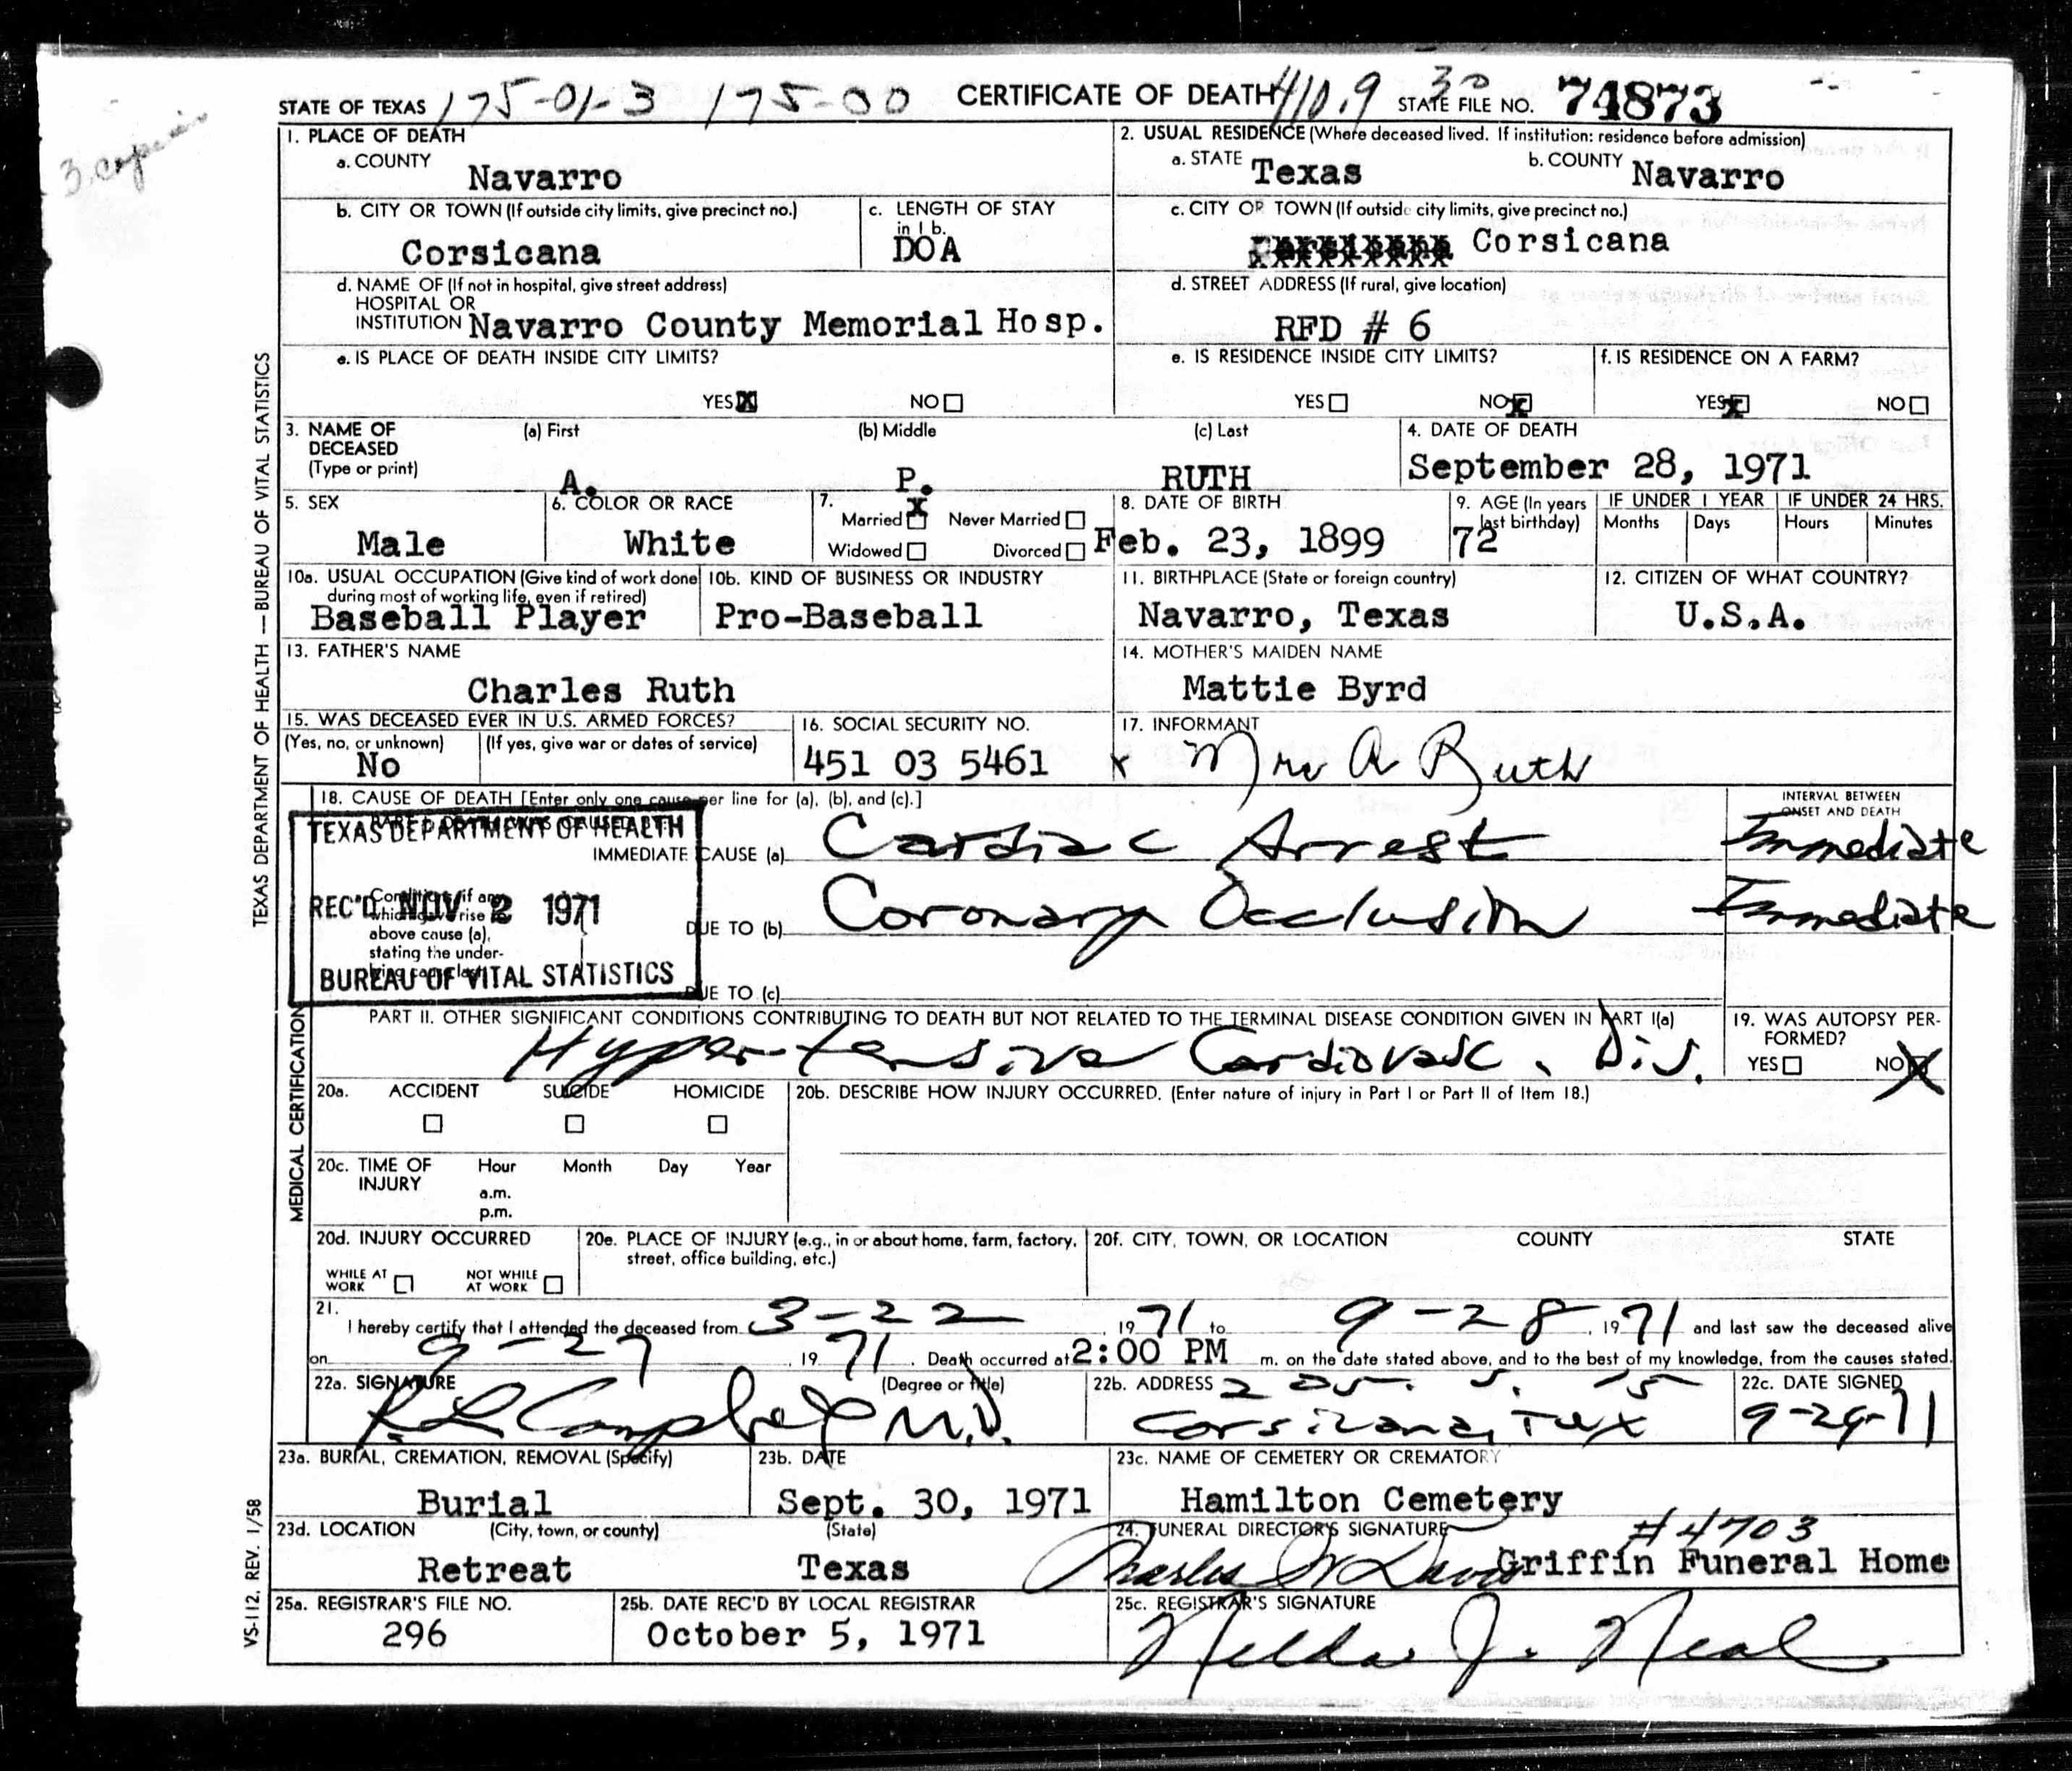 3 copies
STATE OF TEXAS 175-01-3 175-00 CERTIFICATE OF DEATH 410.9 30 STATE FILE NO. 74873
TEXAS DEPARTMENT OF HEALTH — BUREAU OF VITAL STATISTICS
1. PLACE OF DEATH
a. COUNTY Navarro
2. USUAL RESIDENCE (Where deceased lived. If institution: residence before admission)
a. STATE Texas b. COUNTY Navarro
b. CITY OR TOWN (If outside city limits, give precinct no.) Corsicana
c. LENGTH OF STAY in 1 b. DOA
c. CITY OR TOWN (If outside city limits, give precinct no.)
Corsicana
d. NAME OF (If not in hospital, give street address)
HOSPITAL OR
INSTITUTION Navarro County Memorial Hosp.
d. STREET ADDRESS (If rural, give location)
RFD # 6
e. IS PLACE OF DEATH INSIDE CITY LIMITS?
YES X NO
e. IS RESIDENCE INSIDE CITY LIMITS?
YES NO X
f. IS RESIDENCE ON A FARM?
YES X NO
3. NAME OF DECEASED (Type or print)
(a) First (b) Middle (c) Last
A. P. RUTH
4. DATE OF DEATH
September 28, 1971
5. SEX
Male
6. COLOR OR RACE
White
7. Married X Never Married
Widowed Divorced
8. DATE OF BIRTH
Feb. 23, 1899
9. AGE (In years last birthday)
72
IF UNDER 1 YEAR IF UNDER 24 HRS.
Months Days Hours Minutes
10a. USUAL OCCUPATION (Give kind of work done during most of working life, even if retired)
Baseball Player
10b. KIND OF BUSINESS OR INDUSTRY
Pro-Baseball
11. BIRTHPLACE (State or foreign country)
Navarro, Texas
12. CITIZEN OF WHAT COUNTRY?
U.S.A.
13. FATHER'S NAME
Charles Ruth
14. MOTHER'S MAIDEN NAME
Mattie Byrd
15. WAS DECEASED EVER IN U.S. ARMED FORCES?
(Yes, no, or unknown) (If yes, give war or dates of service)
No
16. SOCIAL SECURITY NO.
451 03 5461
17. INFORMANT
x Mrs A Ruth
MEDICAL CERTIFICATION
18. CAUSE OF DEATH [Enter only one cause per line for (a), (b), and (c).]
INTERVAL BETWEEN ONSET AND DEATH
TEXAS DEPARTMENT OF HEALTH
REC'D NOV 2 1971
BUREAU OF VITAL STATISTICS
IMMEDIATE CAUSE (a) Cardiac Arrest Immediate
above cause (a), stating the under-
DUE TO (b) Coronary Occlusion Immediate
DUE TO (c)
PART II. OTHER SIGNIFICANT CONDITIONS CONTRIBUTING TO DEATH BUT NOT RELATED TO THE TERMINAL DISEASE CONDITION GIVEN IN PART I(a)
Hypertensive Cardiovasc. Dis.
19. WAS AUTOPSY PER-FORMED?
YES NO X
20a. ACCIDENT SUICIDE HOMICIDE
20b. DESCRIBE HOW INJURY OCCURRED. (Enter nature of injury in Part I or Part II of Item 18.)
20c. TIME OF INJURY Hour Month Day Year
a.m.
p.m.
20d. INJURY OCCURRED
WHILE AT WORK NOT WHILE AT WORK
20e. PLACE OF INJURY (e.g., in or about home, farm, factory, street, office building, etc.)
20f. CITY, TOWN, OR LOCATION COUNTY STATE
21.
I hereby certify that I attended the deceased from 3-22, 1971 to 9-28, 1971 and last saw the deceased alive
on 9-27, 1971. Death occurred at 2:00 PM m. on the date stated above, and to the best of my knowledge, from the causes stated.
22a. SIGNATURE (Degree or title)
Campbell M.D.
22b. ADDRESS 205. S. 15
Corsicana, Tex
22c. DATE SIGNED
9-29-71
23a. BURIAL, CREMATION, REMOVAL (Specify)
Burial
23b. DATE
Sept. 30, 1971
23c. NAME OF CEMETERY OR CREMATORY
Hamilton Cemetery
23d. LOCATION (City, town, or county) (State)
Retreat Texas
24. FUNERAL DIRECTOR'S SIGNATURE #4703
Charles W Davis Griffin Funeral Home
25a. REGISTRAR'S FILE NO.
296
25b. DATE REC'D BY LOCAL REGISTRAR
October 5, 1971
25c. REGISTRAR'S SIGNATURE
Nelda J. Neal
VS-112. REV. 1/58